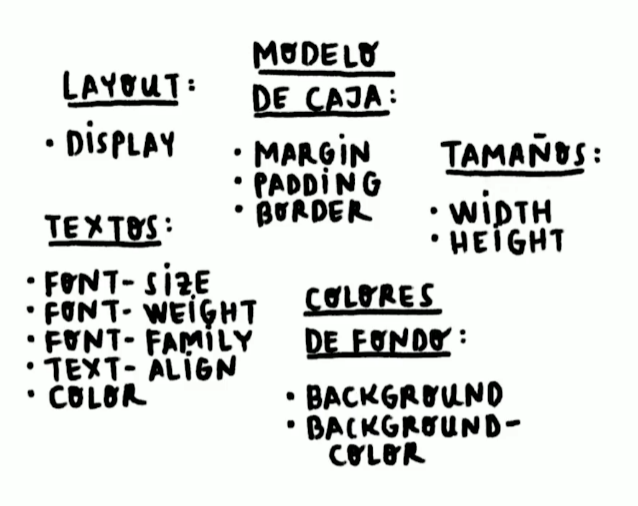 LAYOUT:
• DiSPLAY
MODELO
DE CAJA:
• MARGiN
• PADDiNG
• BORDER
TAMAÑOS:
• WiDTH
• HEiGHT
TEXTOS:
• FONT-SiZE
• FONT-WEiGHT
• FONT-FAMiLY
• TEXT-ALiGN
• COLOR
COLORES
DE FONDO:
• BACKGROUND
• BACKGROUND-
COLOR